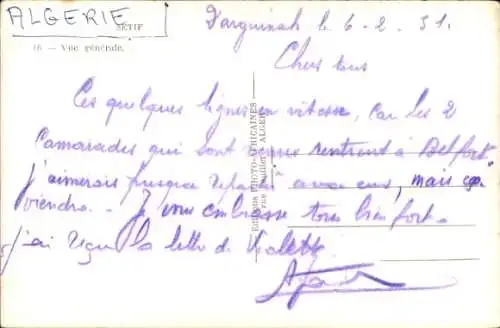 ALGERIE
SÉTIF
16 – Vue générale.
Darguinah le 6-2.51.
Chers tous
Ces quelques lignes en vitesse, car les 2
Camarades qui sont venus rentrent à Belfort.
j'aimerais presque repartir avec eux, mais ça
viendra. Je vous embrasse tous bien fort.
j'ai reçu la lettre de
EDITIONS PHOTO-AFRICAINES
ALGER